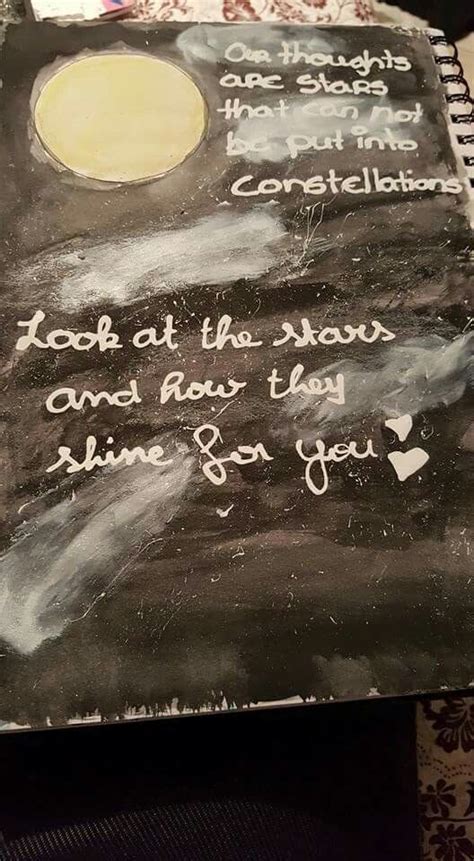 Our thoughts
are stars
that can not
be put into
constellations
Look at the stars
and how they
shine for you